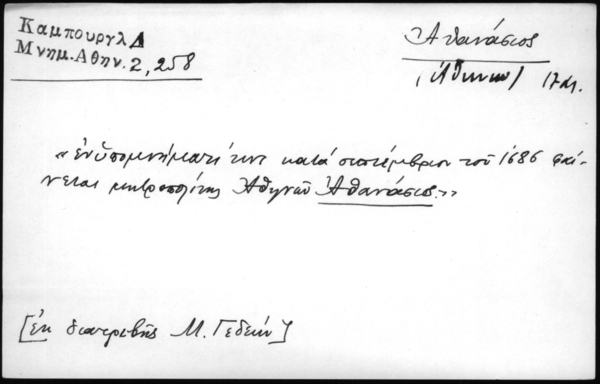 Καμπουργλ Δ
Μνημ. Αθην. 2, 258
Ἀθανάσιος
(Ἀθηνῶν) 17 αι.
«ἐν ὑπομνήματί τινι κατὰ σεπτέμβριον τοῦ 1686 φαί-
νεται μητροπολίτης Ἀθηνῶν Ἀθανάσιος.»
[Ἐκ διατριβῆς Μ. Γεδεών]